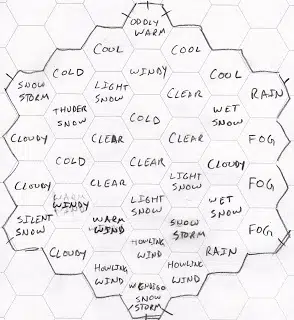 ODDLY
WARM
COOL
COOL
COLD
WINDY
COOL
SNOW
STORM
LIGHT
SNOW
CLEAR
RAIN
THUDER
SNOW
COLD
WET
SNOW
CLOUDY
CLEAR
CLEAR
FOG
COLD
CLEAR
CLOUDY
CLOUDY
CLEAR
LIGHT
SNOW
FOG
WARM
WINDY
LIGHT
SNOW
WET
SNOW
SILENT
SNOW
WARM
WIND
SNOW
STORM
FOG
CLOUDY
HOWLING
WIND
RAIN
HOWLING
WIND
HOWLING
WIND
WENDIGO
SNOW
STORM